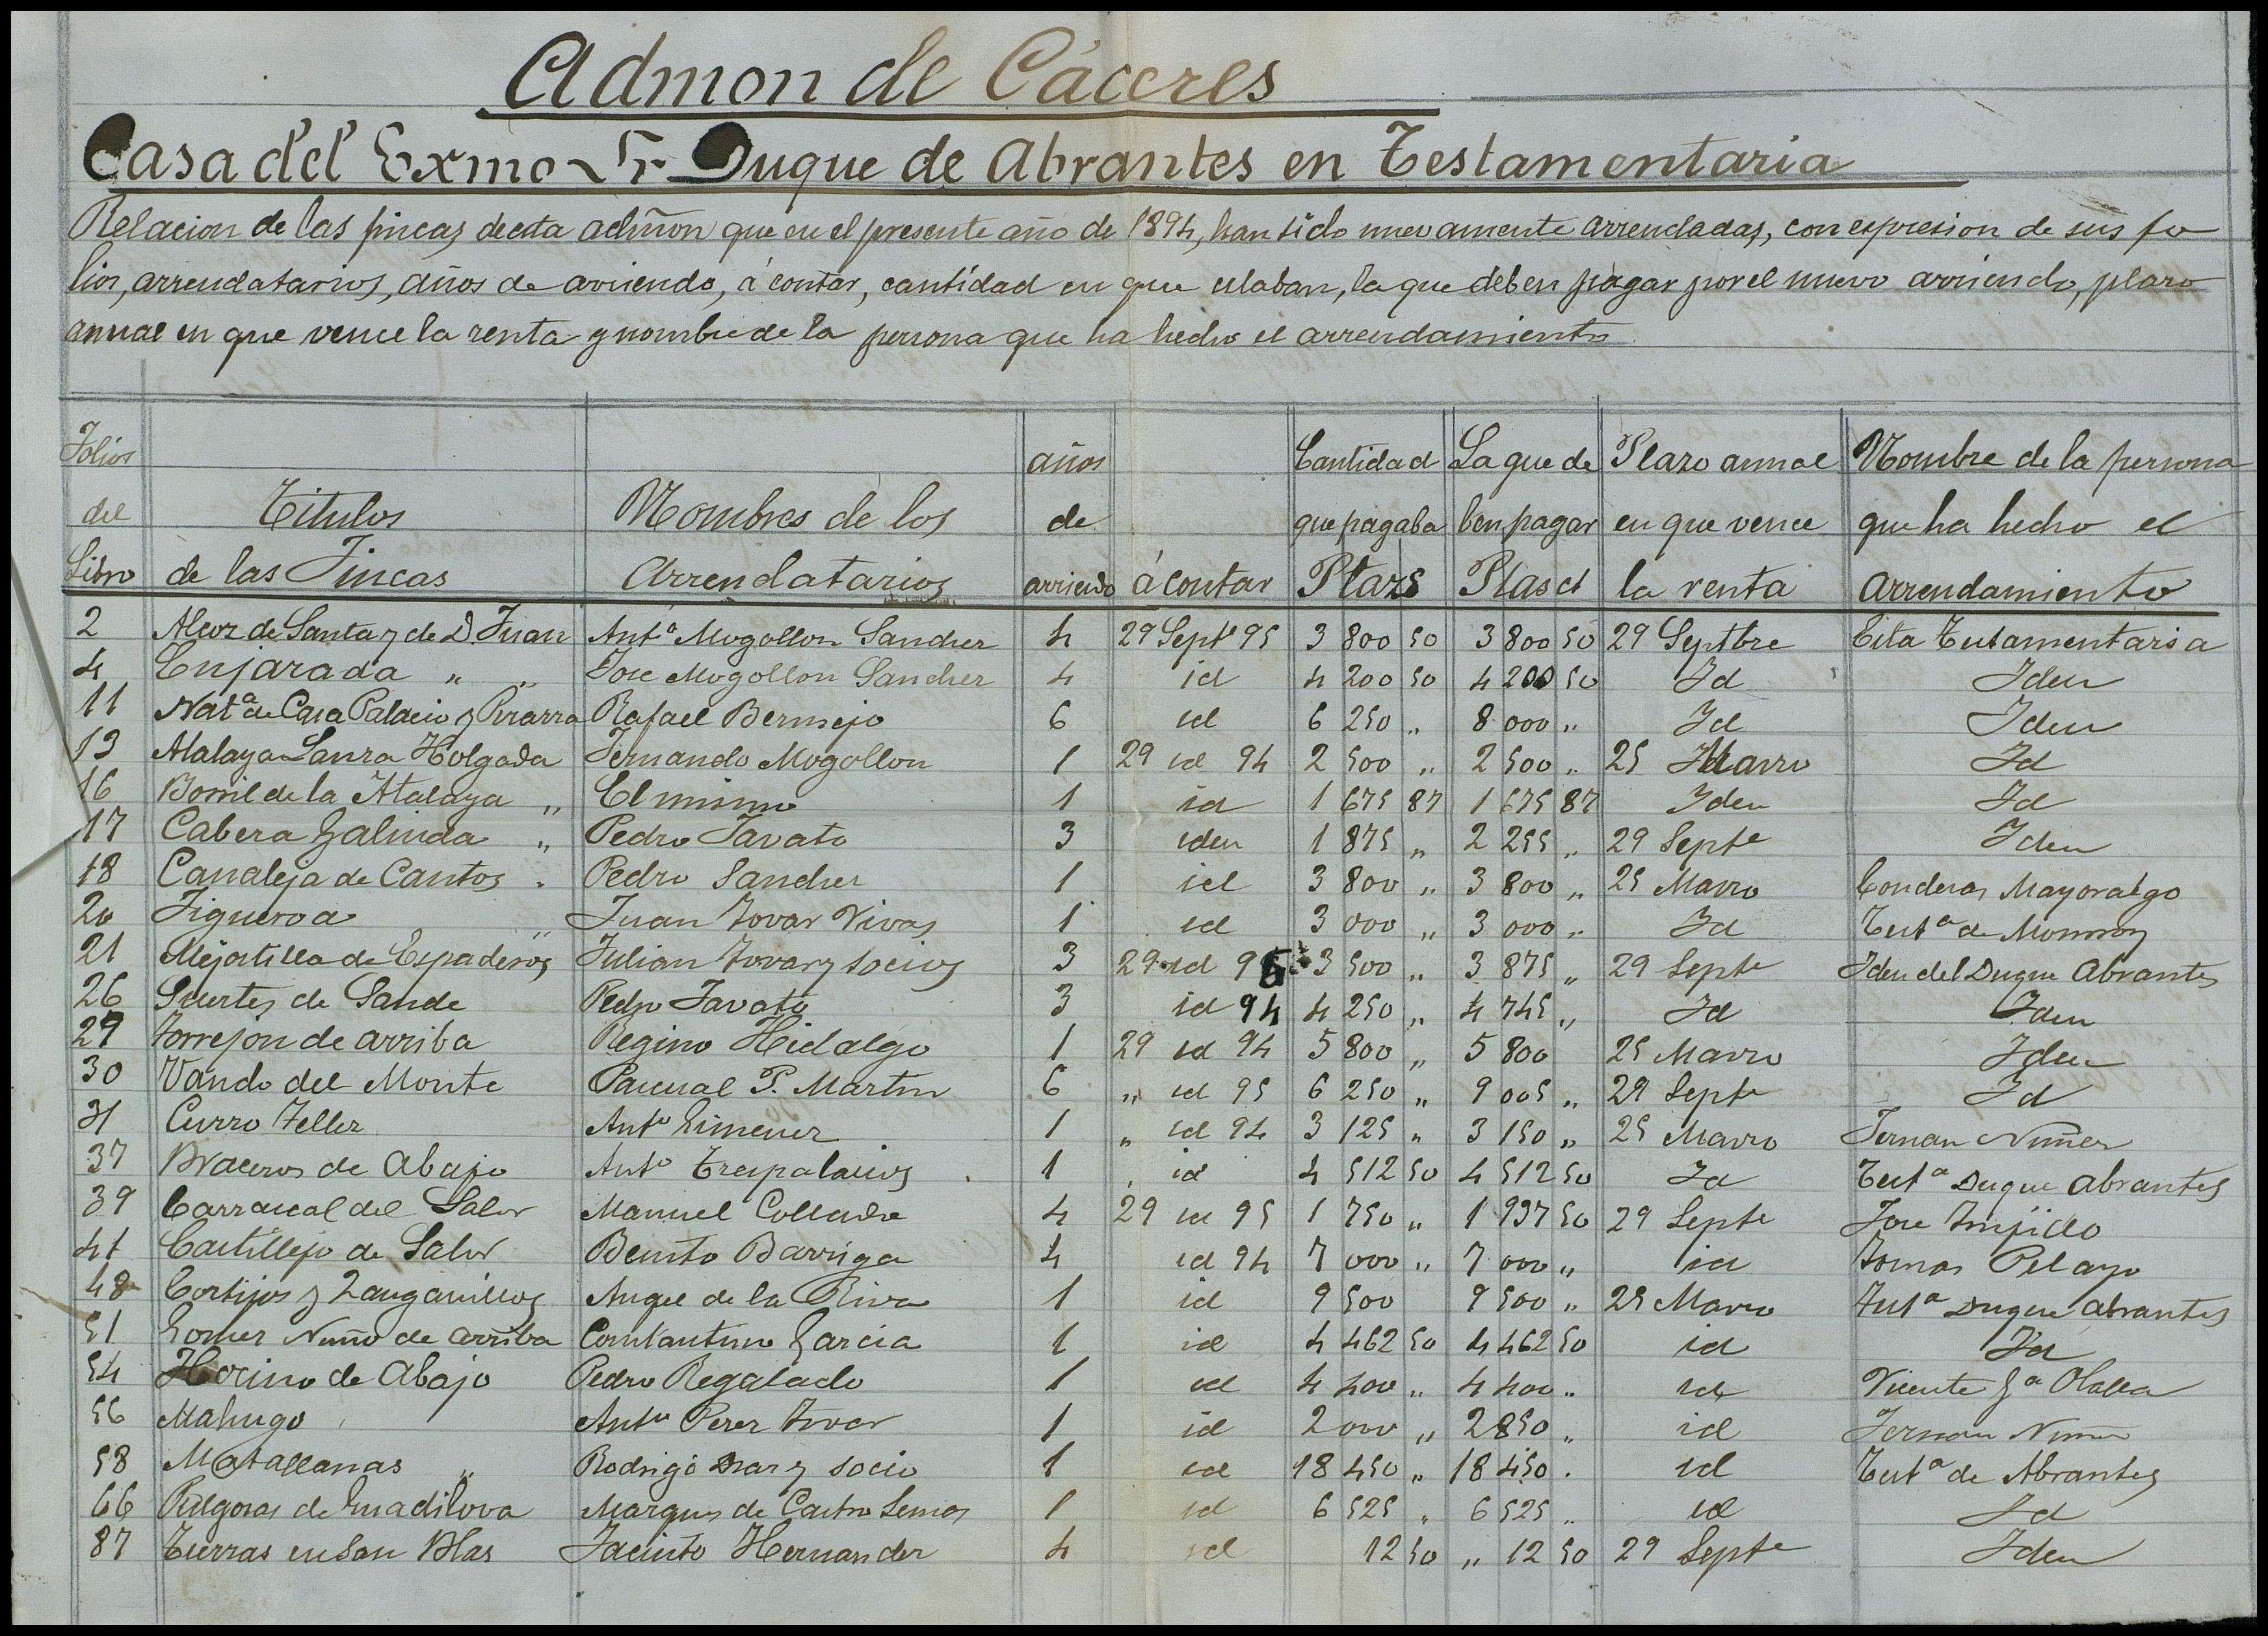 Admon de Cáceres
Casa del Exmo Sr Duque de Abrantes en Testamentaria
Relacion de las fincas de esta admon que en el presente año de 1894, han sido nuevamente arrendadas, con espresion de sus fo
lios, arrendatarios, años de arriendo, á contar, cantidad en que estaban, la que deben pagar por el nuevo arriendo, plazo
anual en que vence la renta y nombre de la persona que ha hecho el arrendamiento
Folios del Libro | Titulos de las Fincas | Nombres de los Arrendatarios | años de arriendo | á contar | Cantidad que pagaba Ptas | La que deben pagar Ptas ct | Plazo annal en que vence la renta | Nombre de la persona que ha hecho el arrendamiento
2 Alcor de Santa y de D. Juan Anto Mogollon Sanchez 4 29 Sept 95 3 800 50 3 800 50 29 Septbre Esta Testamentaria
4 Enjarada " " Jose Mogollon Sanchez 4 id 4 200 50 4 200 50 Id Iden
11 Nata de Casa Palacio y Pizarra Rafael Bermejo 6 id 6 250 " 8 000 " Id Iden
13 Atalaya Lanza Holgada Fernando Mogollon 1 29 id 94 2 500 " 2 500 " 25 Marzo Id
16 Borril de la Atalaya " El mismo 1 id 1 675 87 1 675 87 Iden Id
17 Cabeza Galinda " Pedro Javato 3 iden 1 875 " 2 255 " 29 Septe Iden
18 Canaleja de Cantos . Pedro Sanchez 1 id 3 800 " 3 800 " 25 Marzo Condesa Mayoralgo
20 Figueroa " Juan Tovar Vivas 1 id 3 000 " 3 000 " Id Testa de Monroy
21 Mejostilla de Espaderos Julian Tovar y socios 3 29 id 95 3 500 " 3 875 " 29 Septe Iden del Duque Abrantes
26 Suertes de Sande Pedro Javato 3 id 94 4 250 " 4 745 " Id Iden
29 Torrejon de arriba Regino Hidalgo 1 29 id 94 5 800 " 5 800 25 Marzo Iden
30 Vando del Monte Pascual P. Martin 6 " id 95 6 250 " 9 005 " 29 Septe Id
31 Curro Teller Anto Gimenez 1 " id 94 3 125 " 3 150 " 25 Marzo Fernan Nuñez
37 Braceros de Abajo Anto Trespalacios 1 id 4 512 50 4 512 50 Id Testa Duque Abrantes
39 Carrascal del Salor Manuel Collado 4 29 id 95 1 750 " 1 937 50 29 Septe Jose Trujillo
41 Castillejo de Salor Benito Barriga 4 id 94 7 000 " 7 000 " id Tomas Pelayo
48 Cortijos y Zanganillos Angel de la Riva 1 id 9 500 9 500 " 25 Marzo Testa Duque Abrantes
51 Gomez Nuño de arriba Constantino Garcia 1 id 4 462 50 4 462 50 id Id
54 Hocino de Abajo Pedro Regalado 1 id 4 400 " 4 400 " id Vicente Ga Olalla
56 Mahugo Anto Perez Tovar 1 id 2 000 " 2850 " id Fernan Nuñez
58 Matallanas " Rodrigo Diaz y socio 1 id 18 450 " 18 450 . id Testa de Abrantes
66 Pulgosas de Guadilova Marques de Castro Lemos 1 id 6 525 " 6 525 " id Id
87 Tierras en San Blas Jacinto Hernandez 4 id 12 50 " 12 50 29 Septe Iden